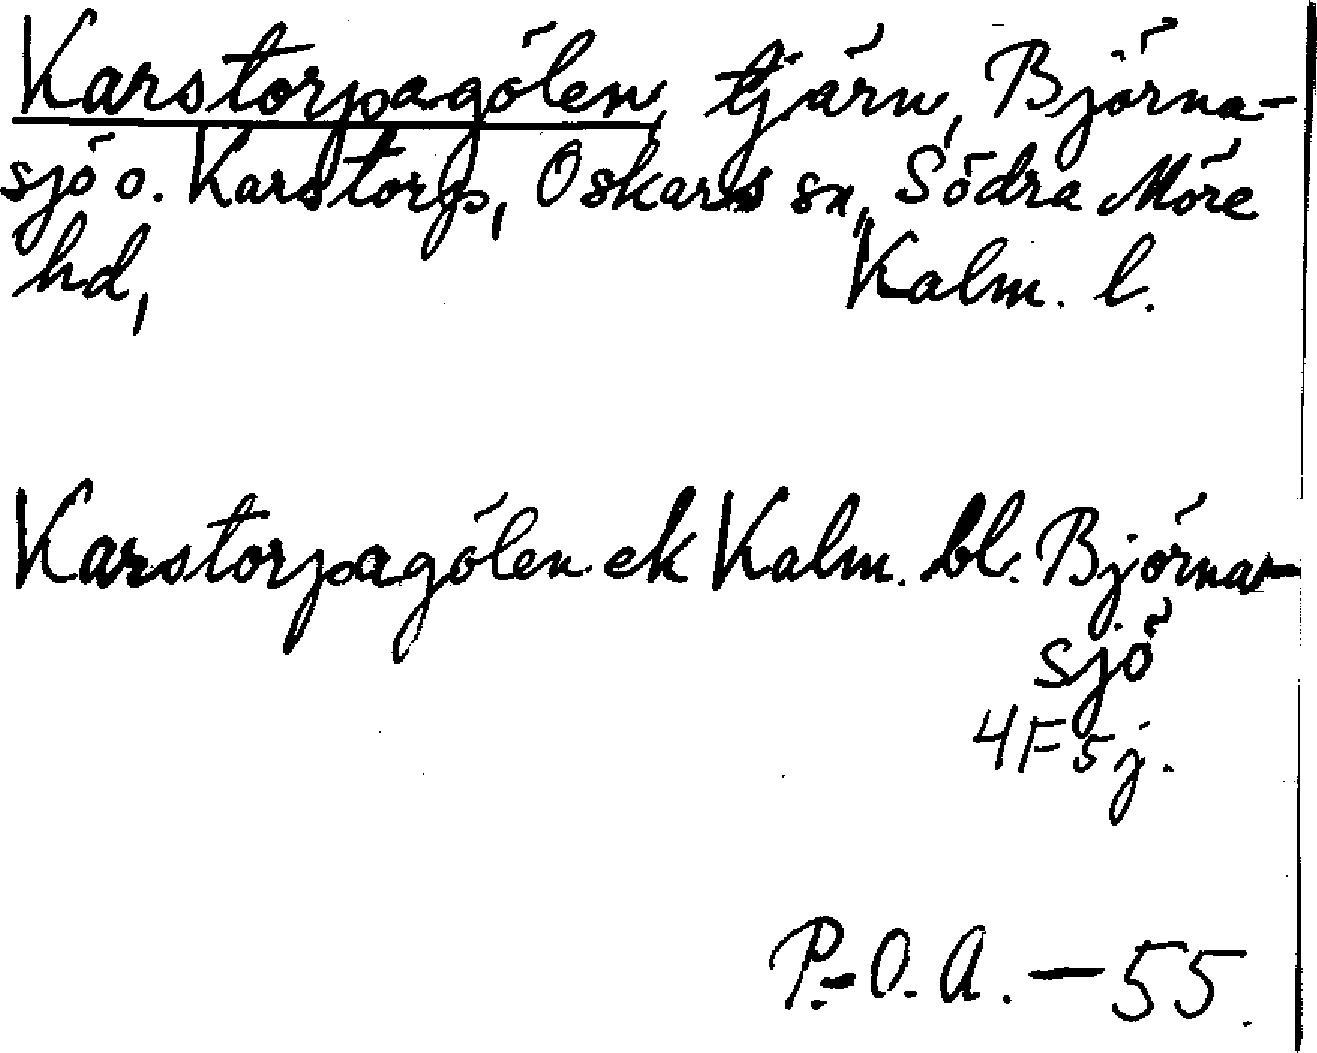 Karstorpagölen, tjärn, Björna-
sjö o. Karstorp, Oskars sn, Södra Möre
hd, Kalm. l.
Karstorpagölen ek Kalm. bl. Björna-
sjö
4F5j.
P.-O.A. — 55.